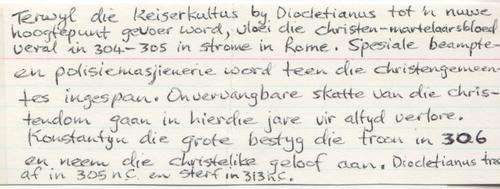 Terwyl die keiserkultus by Diocletianus tot 'n nuwe
hoogtepunt gevoer word, vloei die christen-martelaarsbloed
veral in 304-305 in strome in Rome. Spesiale beampte-
en polisiemasjienerie word teen die christengemeen-
tes ingespan. Onvervangbare skatte van die chris-
tendom gaan in hierdie jare vir altyd verlore.
Konstantyn die grote bestyg die troon in 306
en neem die christelike geloof aan. Diocletianus tree
af in 305 nC. en sterf in 313 nC.